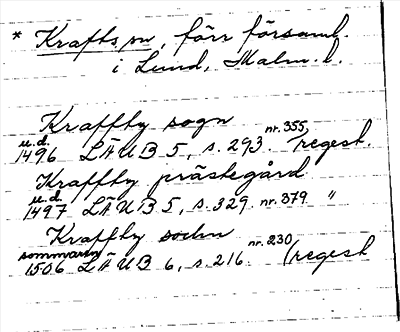 * Krafts sn, förr församl.
i Lund, Malm. l.
Kraffby sogn
u.d. 1496 LÄUB 5, s. 293. nr. 355, (regest.
Kraffby prästegård
u.d. 1497 LÄUB 5, s. 329. nr. 379 "
Kraffby sochn
sommaren 1506 LÄUB 6, s. 216. nr. 230 (regest